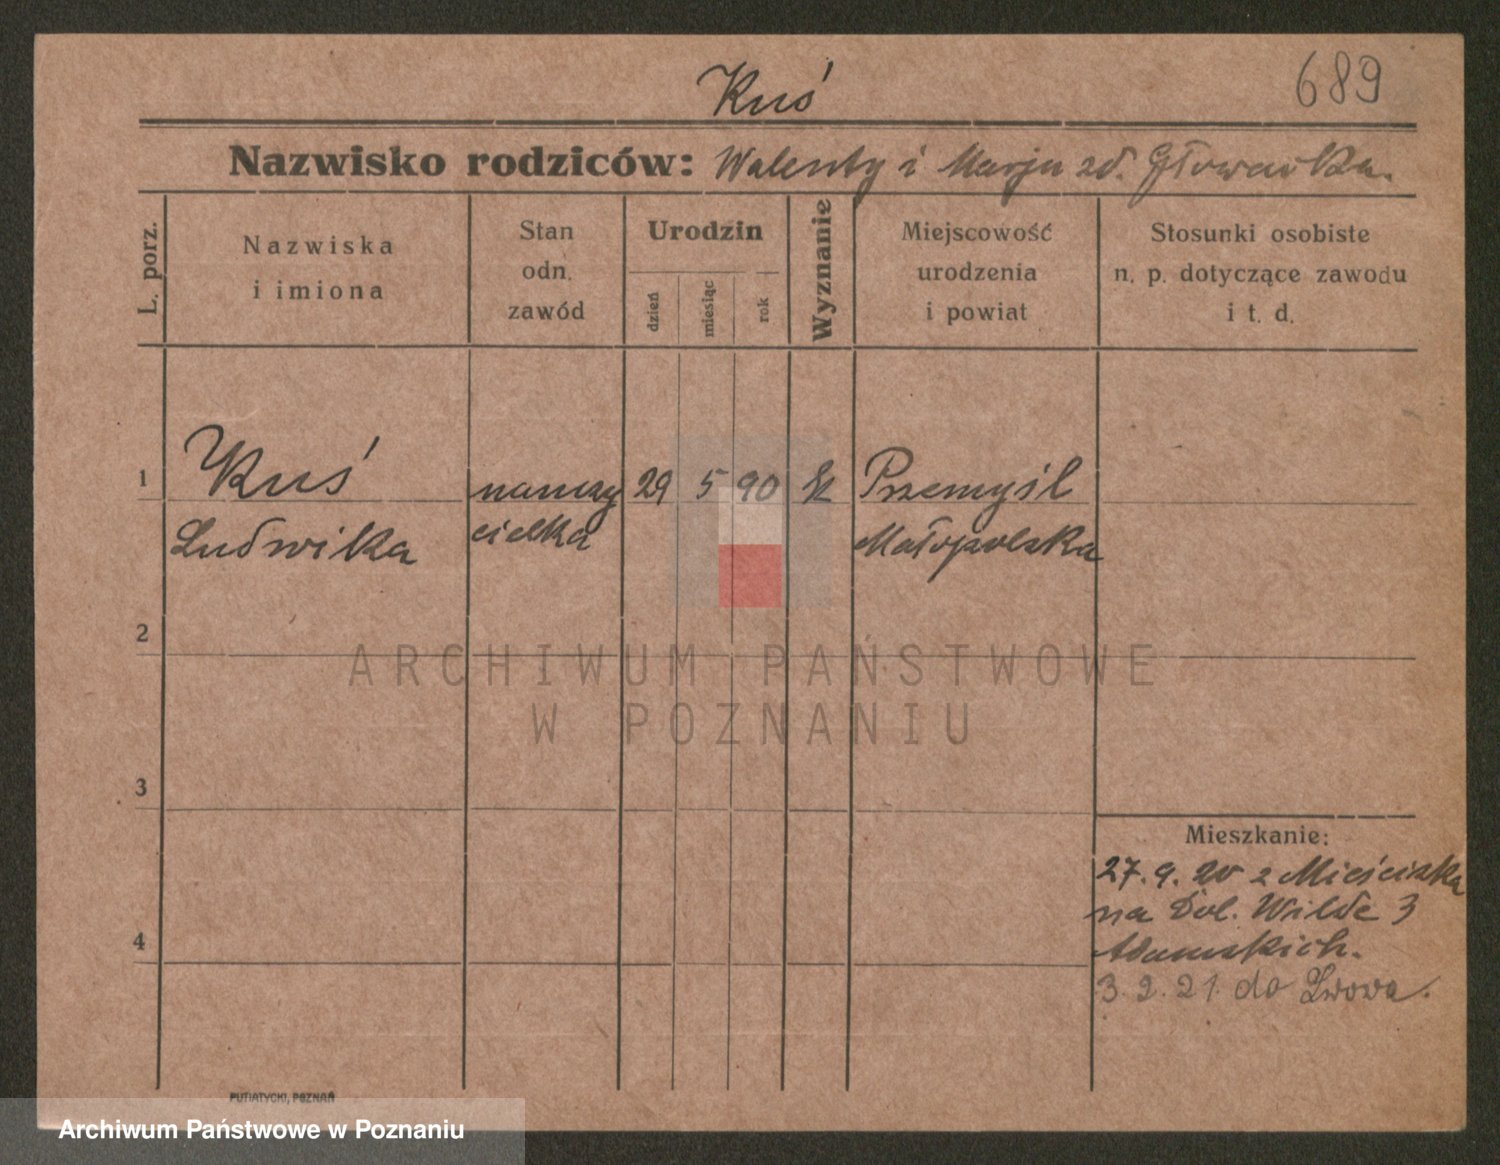 Kuś
689
Nazwisko rodziców: Walenty i Marja zd. Głowacka.
L. porz.
Nazwiska
i imiona
Stan
odn.
zawód
Urodzin
dzień
miesiąc
rok
Wyznanie
Miejscowość
urodzenia
i powiat
Stosunki osobiste
n. p. dotyczące zawodu
i t. d.
1
Kuś
nauczy
29 5 90
k
Przemyśl
Ludwika
cielka
Małopolska
2
ARCHIWUM PAŃSTWOWE
W POZNANIU
3
4
Mieszkanie:
27.9.20 z Mieściska
na Dol. Wilde 3
Adamskich.
3.2.21. do Lwowa.
PUTIATYCKI, POZNAŃ
Archiwum Państwowe w Poznaniu